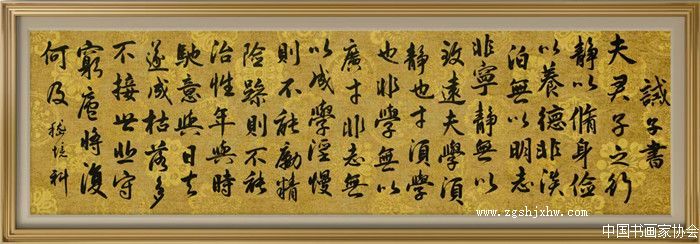 誡子書
夫君子之行
静以脩身俭
以養德非淡
泊無以明志
非寧静無以
致遠夫學須
静也才須學
也非學無以
廣才非志無
以成學淫慢
則不能勵精
險躁則不能
治性年與時
馳意與日去
遂成枯落多
不接世悲守
窮廬將復
何及
www.zgshjxhw.com
中国书画家协会